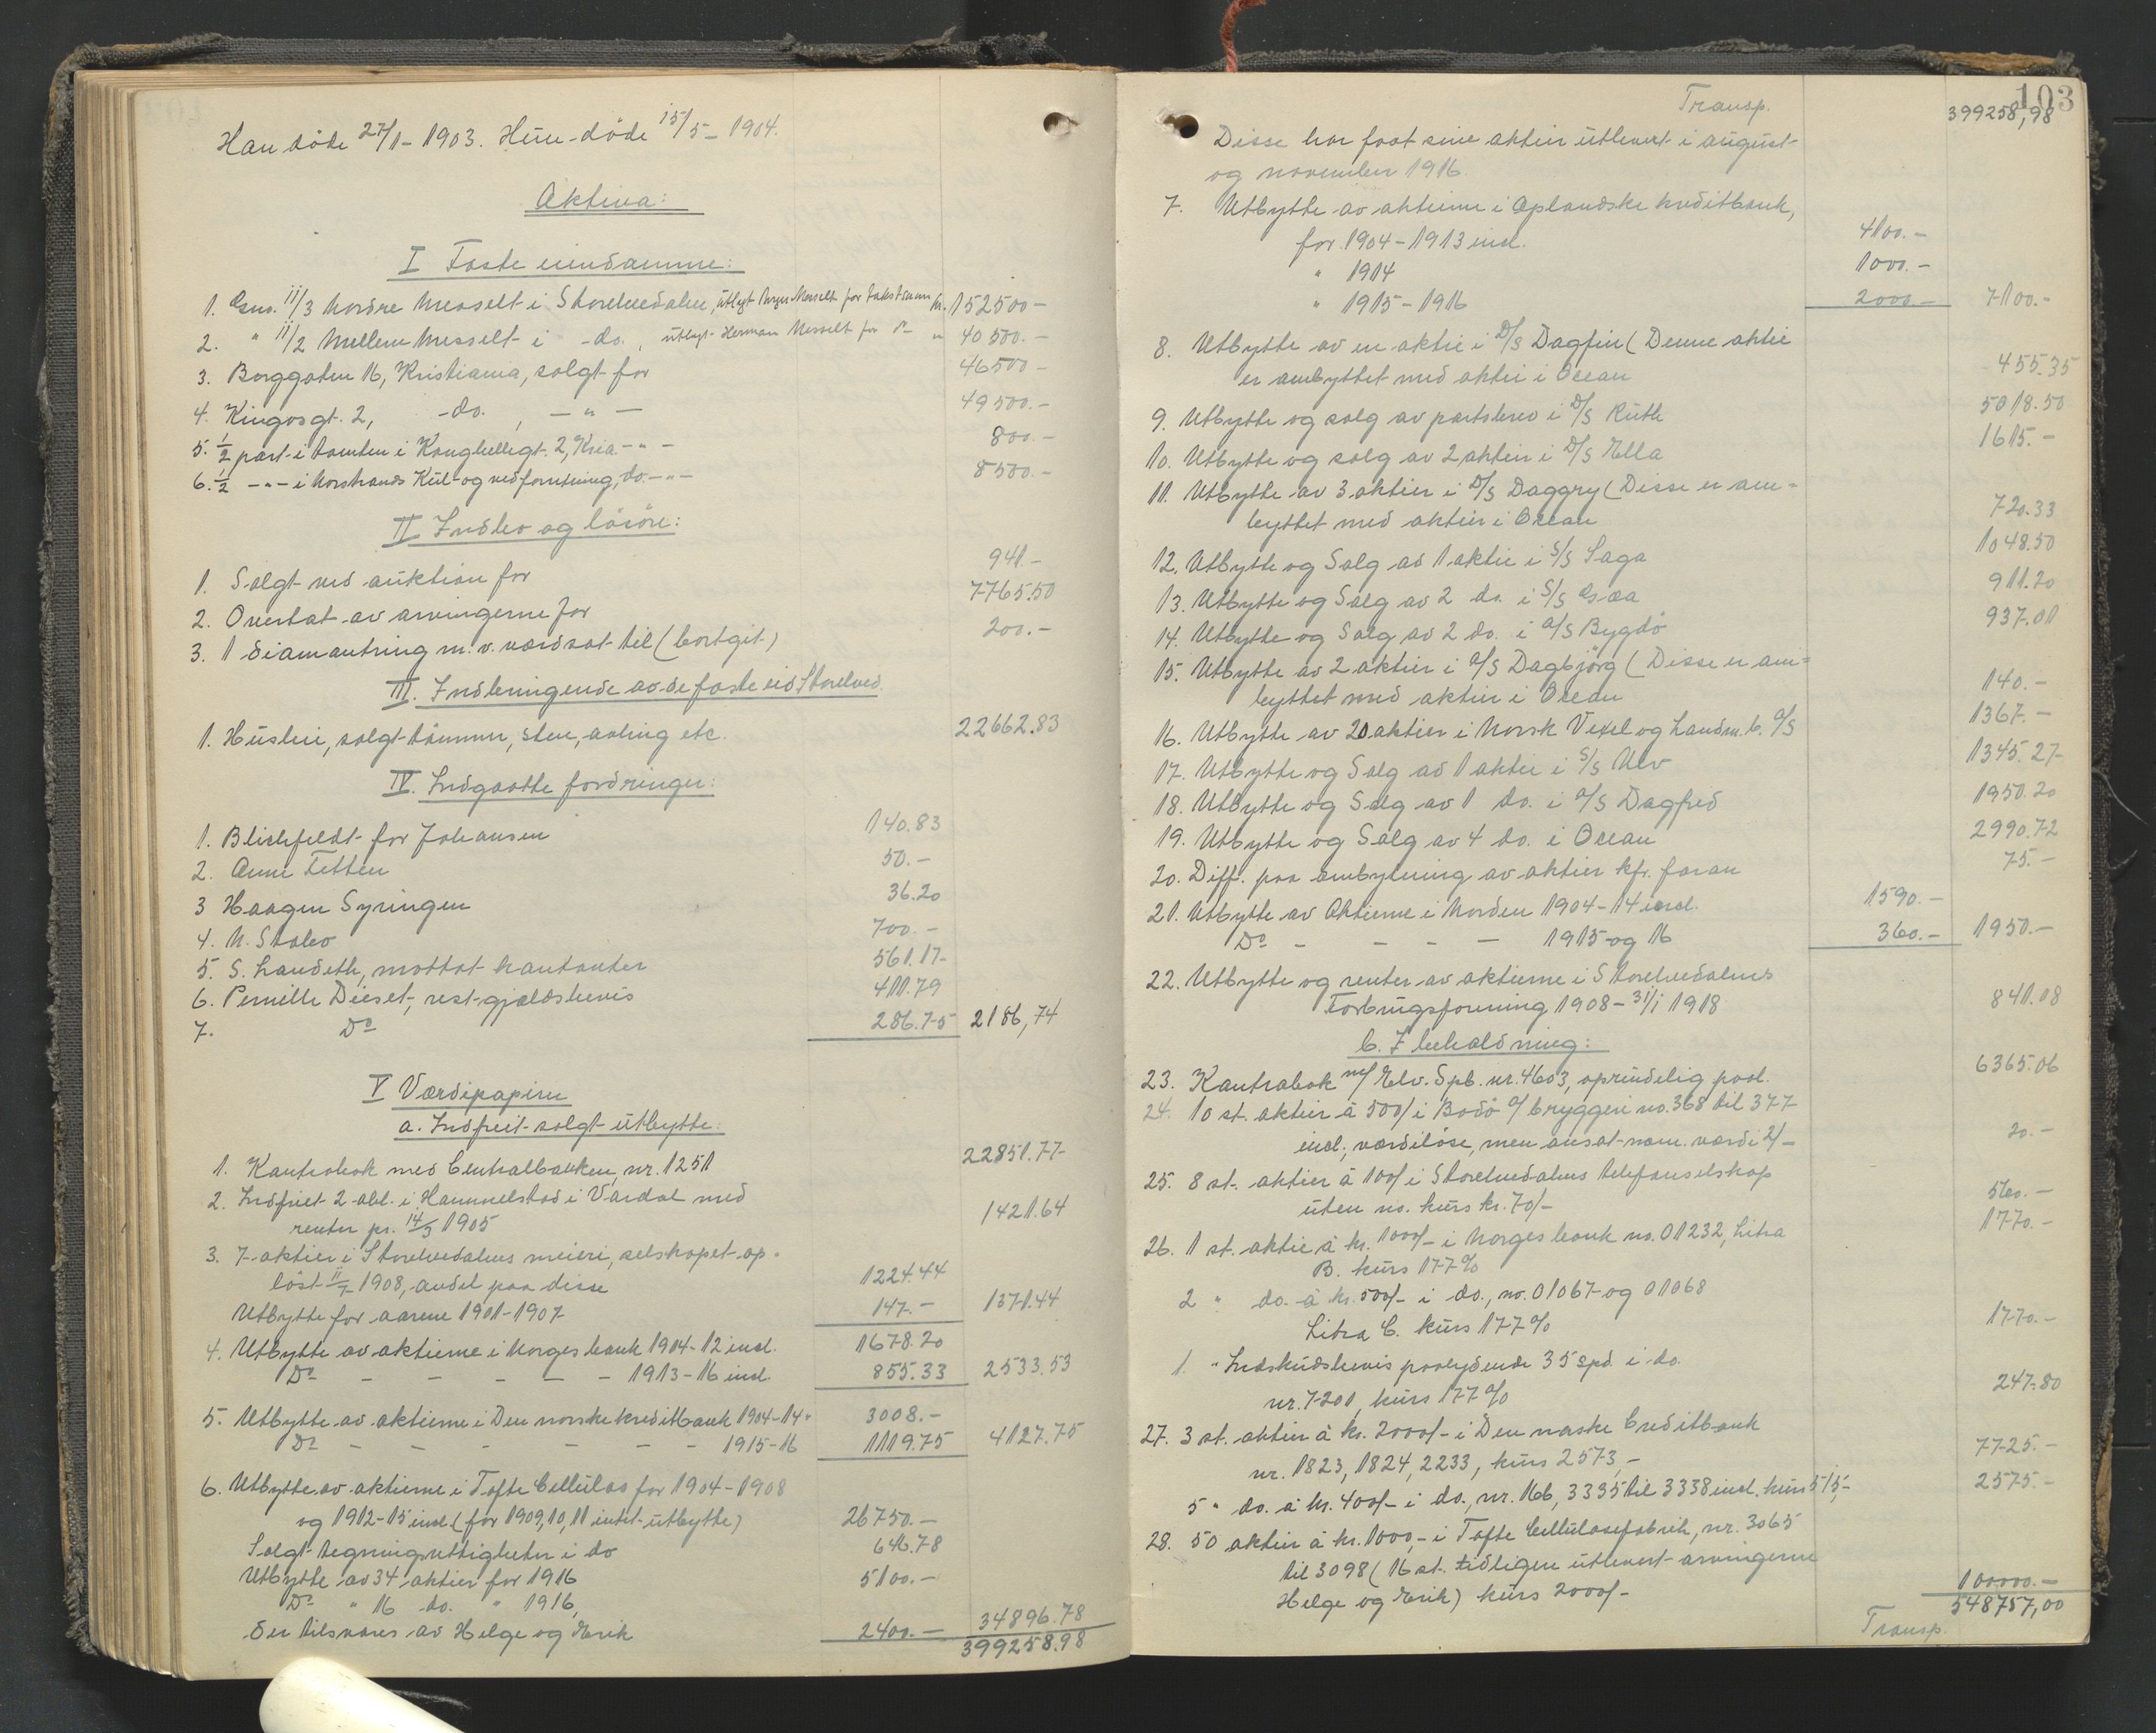 Han döde 27/1 - 1903. Hun döde 15/5 - 1904.
Aktiva:
I Faste eiendamme:
1. Gno. 11/3 Nordre Messelt i Storelvedalen, utlagt Messelt for takstsum kr. 152500 -
2. " 11/2 Mellem Messelt i - do. , utlagt Herman Messelt for do " 40500. -
3. Borggaten 16, Kristiania, solgt for 46500 -
4. Kingosgt. 2, - do. , - " - 49500. -
5. 1/2 part i tomten i Konghellegt. 2, Kria. - " - 800. -
6. 1/2 - " - i Norstrands Kul- og vedforretning, do. - " - 8500. -
II. Indbo og lösöre:
1. Solgt ved auktion for 941. -
2. Overtat av arvingerne for 7765.50
3. 1 diamantring m. v. værdsat til (bortgit) 200. -
III. Indbringende av de faste eid. Storelved.
1. Husleie, solgt tömmer, sten, avling etc. 22662.83
IV. Indgaatte fordringer:
1. Blichfeldt for Johansen 140.83
2. Anne Tetten 50. -
3 Haagen Syringen 36.20
4. N. Stalvo 700. -
5. S. Landeth, mottat kontanter 561.17
6. Pernille Dieset, rest gjældsbevis 411.79
7. Do 286.75 2186,74
V Værdipapirer
a. Indfriet - solgt - utbytte:
1. Kontrabok med Centralbanken, nr. 1251 22851.77
2. Indfriet 2 obl. i Hammelstad i Vardal med
renter pr. 14/3 1905 1421.64
3. 7 aktier i Storelvedalens meieri, selskapet op-
löst 11/7 1908, andel paa disse 1224.44
Utbytte for aarene 1901-1907 147. - 1371.44
4. Utbytte av aktierne i Norges bank 1904-12 incl. 1678.20
Do - - - - - 1913-16 incl. 855.33 2533.53
5. Utbytte av aktierne i Den norske kreditbank 1904-14 " 3008. -
Do - - - - - - 1915-16 1119.75 4127.75
6. Utbytte av aktierne i Tofte Cellulos for 1904-1908
og 1912-15 incl. (for 1909, 10, 11 intet utbytte) 26750. -
Solgt tegningsrettigheter i do 646.78
Utbytte av 34 aktier for 1916 5100. -
Do " 16 do. " 1916,
der tilsvares av Helge og Erik 2400. - 34896.78
399258.98
103
Transp. 399258,98
Disse har faat sine aktier utlevert i august
og november 1916.
7. Utbytte av aktierne i Oplandske kreditbank,
for 1904-1913 incl. 4100. -
" 1914 1000. -
" 1915-1916 2000. - 7100. -
8. Utbytte av en aktie i D/S Dagfin (Denne aktie
er ombyttet med aktie i Ocean 455.35
9. Utbytte og salg av partsbrev i D/S Ruth 5018.50
10. Utbytte og salg av 2 aktier i D/S Ella 1615. -
11. Utbytte av 3 aktier i D/S Daggry (Disse er om-
byttet med aktier i Ocean 720.33
12. Utbytte og Salg av 1 aktie i S/S Saga 1048.50
13. Utbytte og Salg av 2 do. i S/S Gaa 911.20
14. Utbytte og Salg av 2 do. i A/S Bygdö 937.01
15. Utbytte av 2 aktier i A/S Dagbjörg (Disse er om-
byttet med aktier i Ocean 140. -
16. Utbytte av 20 aktier i Norsk Vexel og Landm. b. A/S 1367. -
17. Utbytte og Salg av 1 aktie i S/S Ulv 1345.27
18. Utbytte og Salg av 1 do. i A/S Dagfred 1950.20
19. Utbytte og Salg av 4 do. i Ocean 2990.72
20. Diff. paa ombytning av aktier kfr. foran 75. -
21. Utbytte av Aktierne i Norden 1904-14 incl. 1590. -
Do - - - - 1915 og 16 360. - 1950. -
22. Utbytte og renter av aktierne i Storelvedalens
Forbrugsforening 1908 - 31/1 1918 841.18
b. I behaldning:
23. Kontrabok m/ Elv. Spb. nr. 4603, oprindelig paal. 6365.06
24. 10 st. aktier á 500/ i Bodö A/ bryggeri no. 368 til 377
incl., værdilöse, men ansat nom. værdi 2/- 20. -
25. 8 st. aktier á 100/ i Storelvedalens telefonselskap
uten no. kurs kr. 70/- 560. -
26. 1 st. aktie á kr. 1000/- i Norges bank no. 01232, Litra
B. kurs 177% 1770. -
2 " do. á kr. 500/- i do., no. 01067 og 01068
Litra C. kurs 177% 1770. -
1. " Indskudsbevis paalydende 35 spd. i do.
nr. 7201, kurs 177% 247.80
27. 3 st. aktier á kr. 2000/- i Den norske Creditbank
nr. 1823, 1824, 2233, kurs 2573,- 7725. -
5 " do. á kr. 400/- i do., nr. 166, 3335 til 3338 incl. kurs 515,- 2575. -
28. 50 aktier á kr. 1000,- i Tofte Cellulosefabrik, nr. 3065
til 3098 (16 st. tidligere utlevert arvingerne
Helge og Erik) kurs 2000/- 100000. -
Transp. 548757,00